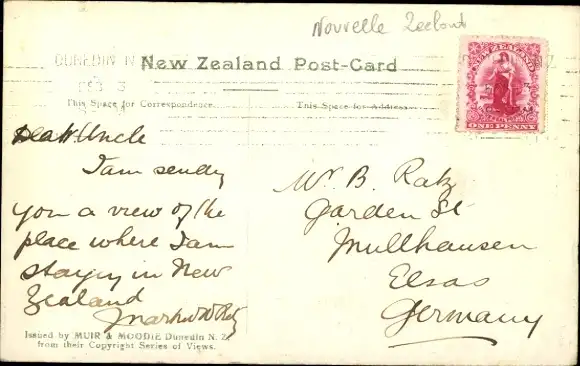 Nouvelle
DUNEDIN N Z
New Zealand Post-Card
NEW ZEALAND
ONE PENNY
This Space for Correspondence.
This Space for Address.
Dear Uncle
I am sendg
you a view of the
place where I am
stayin in New
Zealand
Issued by MUIR & MOODIE Dunedin N. Z.
from their Copyright Series of Views.
Mr. B. Ratz
Garden St
Mullhausen
Elsas
Germany